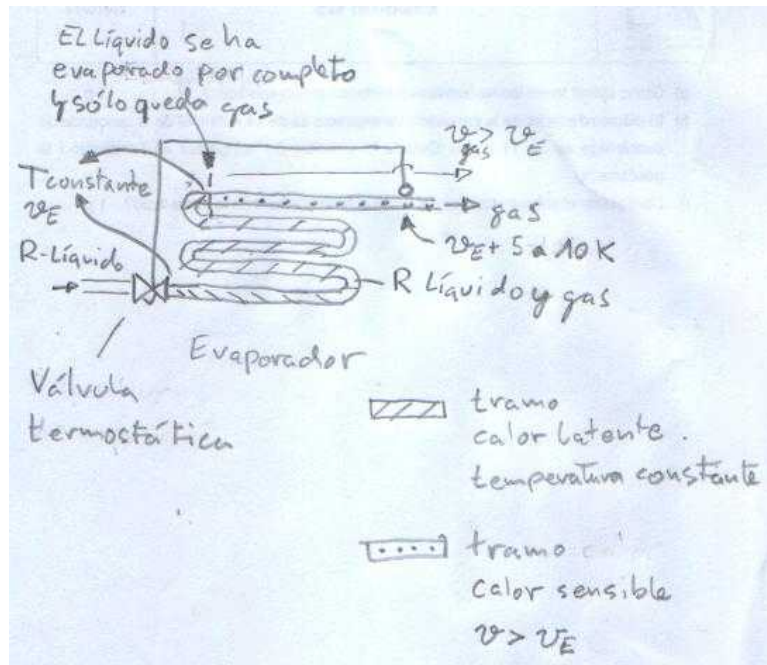 EL Líquido se ha
evaporado por completo
y sólo queda gas
T constante
ϑE
R-Líquido
ϑgas > ϑE
gas
ϑE + 5 a 10 K
R Líquido y gas
Evaporador
Válvula
termostática
tramo
calor latente.
temperatura constante
tramo
calor sensible
ϑ > ϑE